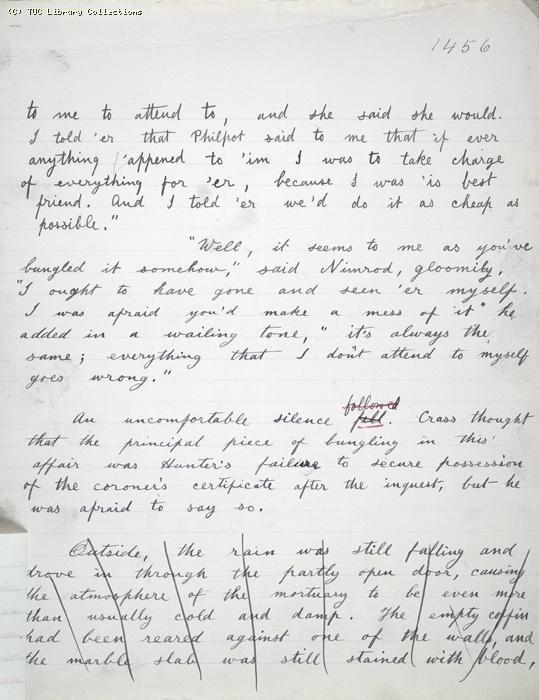 (C) TUC Library Collections
1456
to me to attend to, and she said she would.
I told 'er that Philpot said to me that if ever
anything 'appened to 'im I was to take charge
of everything for 'er, because I was 'is best
friend. And I told 'er we'd do it as cheap as
possible."
"Well, it seems to me as you've
bungled it somehow," said Nimrod, gloomily.
"I ought to have gone and seen 'er myself.
I was afraid you'd make a mess of it" he
added in a wailing tone, "it's always the
same; everything that I don't attend to myself
goes wrong."
followed
An uncomfortable silence fell. Crass thought
that the principal piece of bungling in this
affair was Hunter's failure to secure possession
of the coroner's certificate after the inquest, but he
was afraid to say so.
Outside, the rain was still falling and
drove in through the partly open door, causing
the atmosphere of the mortuary to be even more
than usually cold and damp. The empty coffin
had been reared against one of the walls, and
the marble slab was still stained with blood,